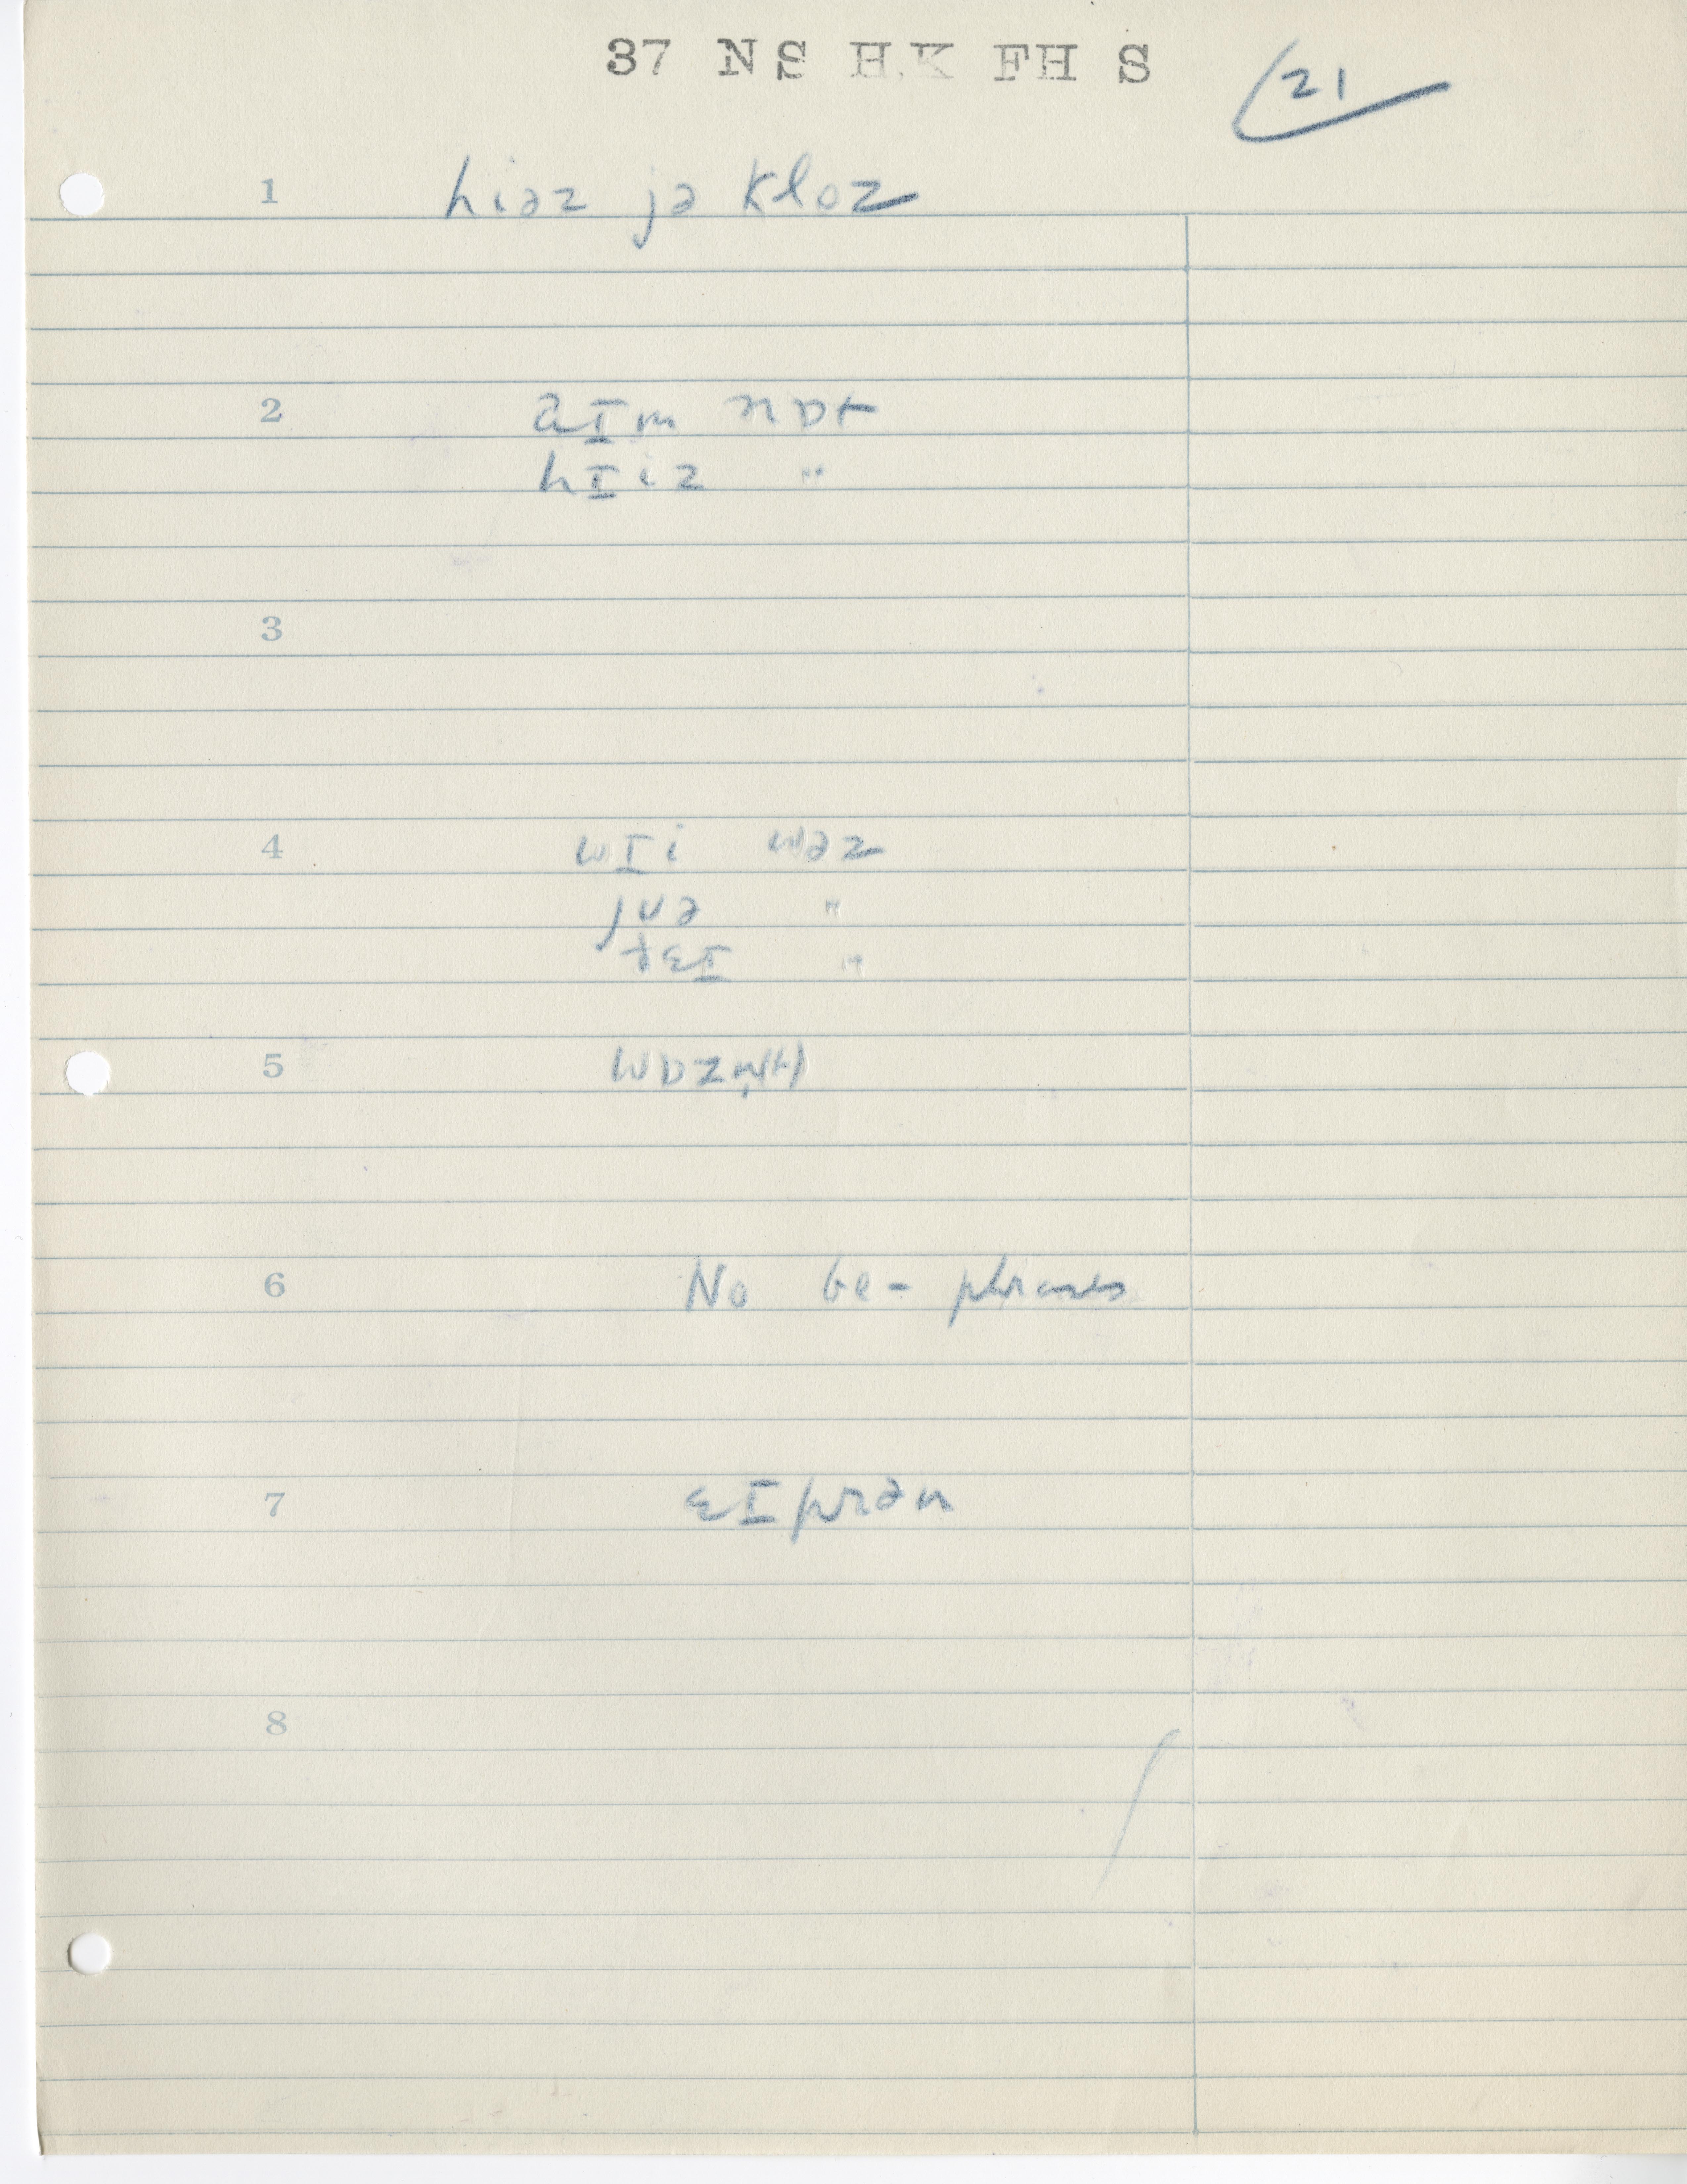 37 NS H.K FH S
21
1 hiəz jə kloz
2 aɪm nɒt
hɪiz "
3
4 wɪi wəz
juə "
ðɛɪ "
5
6 No be- phrases
7 ɛɪprən
8